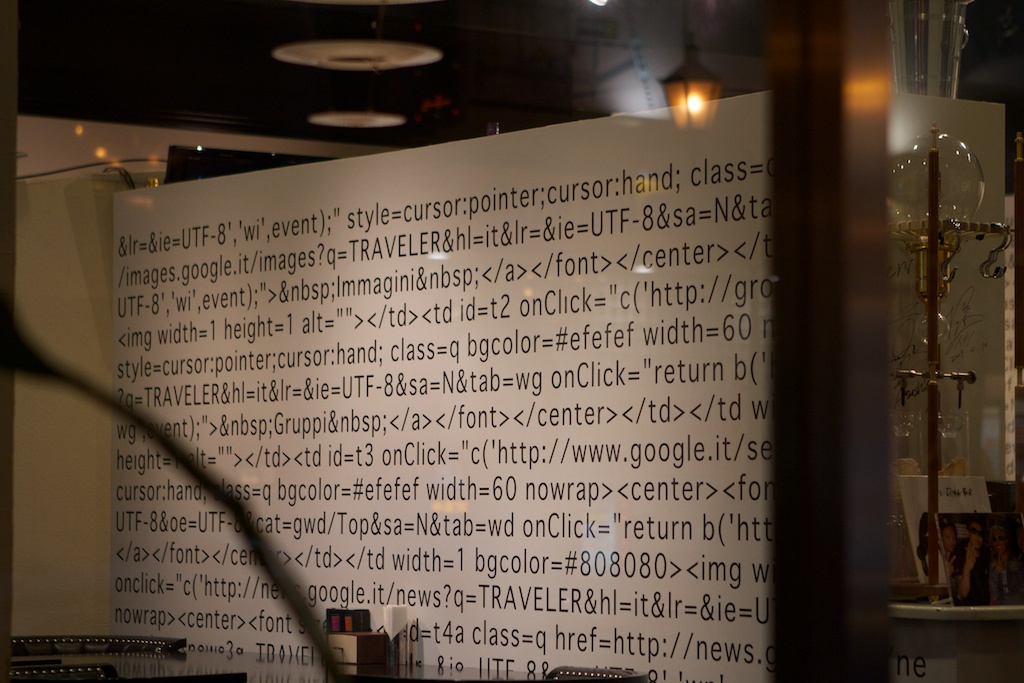 &lr=&ie=UTF-8','wi',event);" style=cursor:pointer;cursor:hand; class=
/images.google.it/images?q=TRAVELER&hl=it&lr=&ie=UTF-8&sa=N&ta
UTF-8','wi',event);">&nbsp;Immagini&nbsp;</a></font></center></t
<img width=1 height=1 alt=""></td><td id=t2 onClick="c('http://gro
style=cursor:pointer;cursor:hand; class=q bgcolor=#efefef width=60 n
?q=TRAVELER&hl=it&lr=&ie=UTF-8&sa=N&tab=wg onClick="return b('
wg',event);">&nbsp;Gruppi&nbsp;</a></font></center></td></td wi
height=1 alt=""></td><td id=t3 onClick="c('http://www.google.it/se
cursor:hand; class=q bgcolor=#efefef width=60 nowrap><center><fon
UTF-8&oe=UTF-8&cat=gwd/Top&sa=N&tab=wd onClick="return b('htt
</a></font></center></td></td width=1 bgcolor=#808080><img wi
onclick="c('http://news.google.it/news?q=TRAVELER&hl=it&lr=&ie=U
nowrap><center><font d=t4a class=q href=http://news.g
news?q
ne